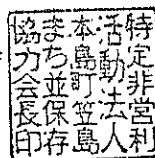 特定非営利
活動法人
本島町笠島
まち並保存
協力会長印